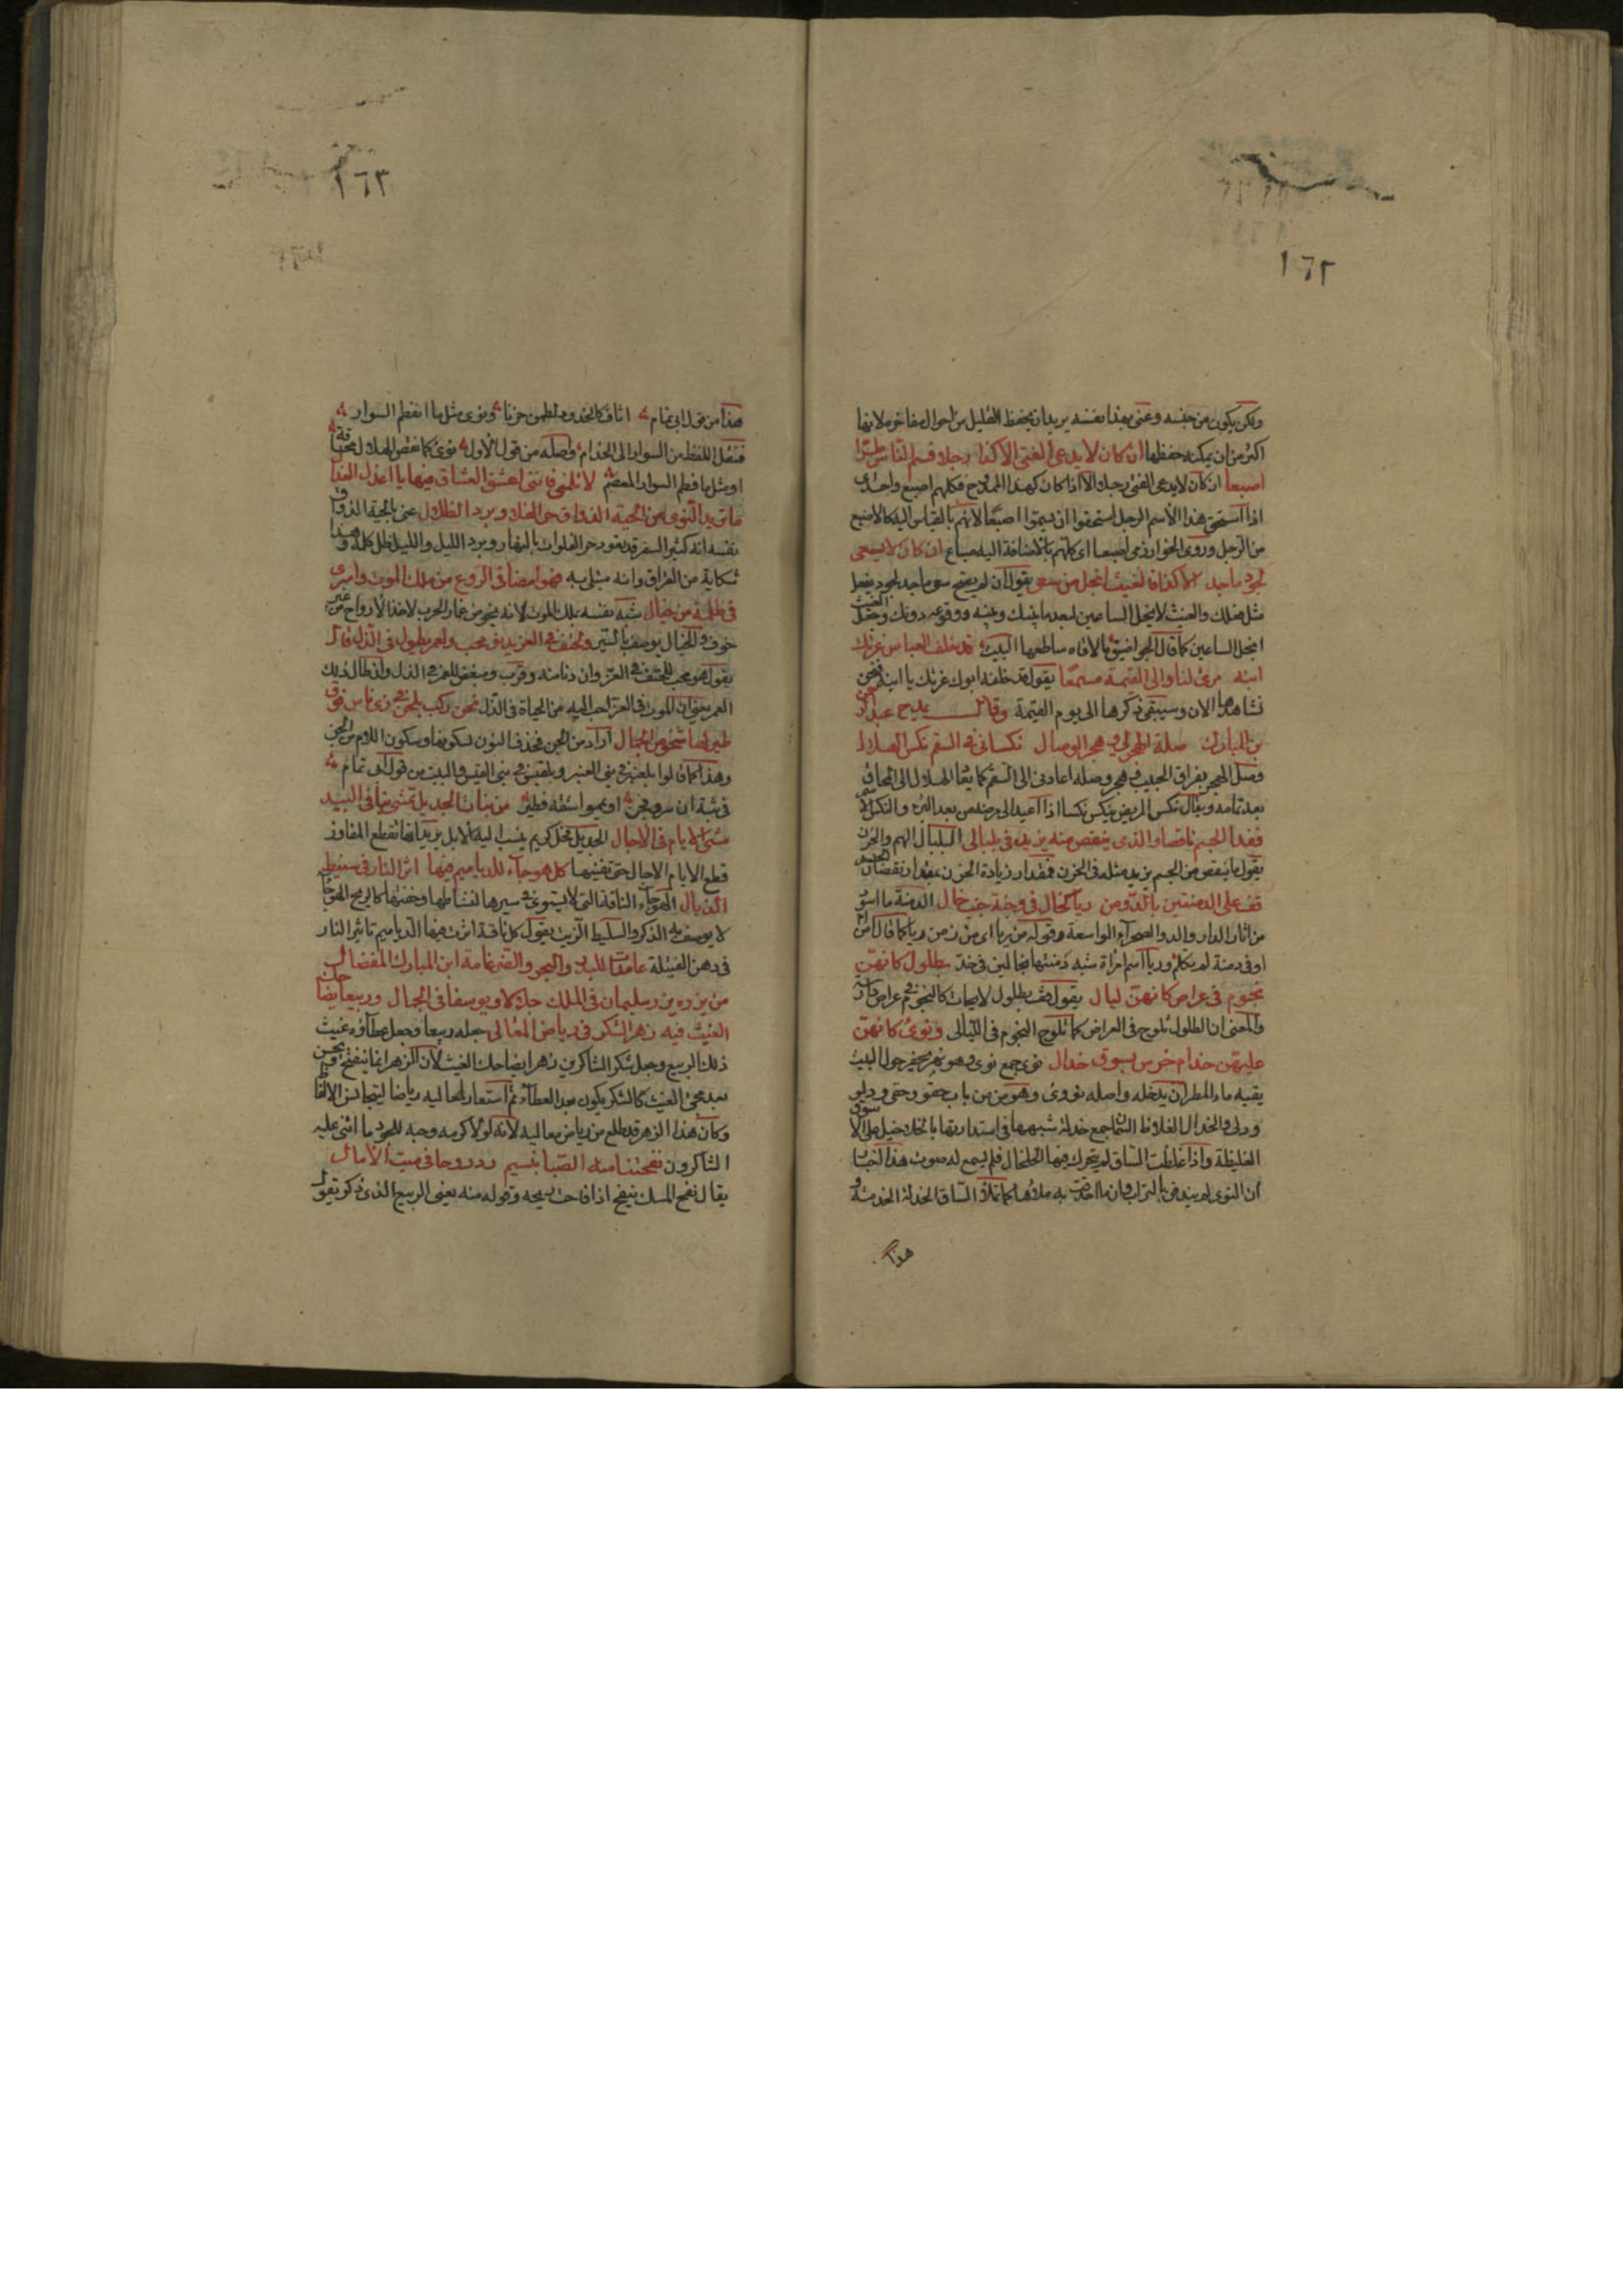 ١٦٢
ولكن يكون من جنسه وعنى بهذا نفسه يريد انه يحفظ القليل من احوال مفاخره لانها
اكثر من ان يمكنه حفظها ان كان لا يدعى الفتى الا كذا رجلا فسم الناس طرّا
اصبعا ان كان لا يدعى الفتى رجلا الا اذا كان كهذا الممدوح فكلهم اصبع واحدى
اذا استحق هذا الاسم الرجل استحقوا ان يسموا اصبعا لانهم بالقياس اليه كالاصبع
من الرجل وروى الخوارزمى اصبعا اى كلهم بالاضافة اليه ضباع ان كان لا يسعى
لجود ماجد الا كذا فالغيث ابخل من سعى يقول ان لم يصح سعى ماجد لجود يفعل
مثل فعلك والغيث لا بخل الساعين لبعد ما بينك وبينه ووقوعه دونك وجعل الغيث
ابخل الساعين كما قال الجو اضيق ما لاقاه ساطعها البيت قد خلف العباس غرتك
ابنه مرئ لنا والى القيمة مسمعا يقول قد خلفه ابوك غرتك يا ابنه فنحن
نشاهدها الان وسيبقى ذكرها الى يوم القيمة وقال يمدح عبد الرحمن
بن المبارك صلة الهجر لى وهجر الوصال نكسانى فى السقم نكس الهلال
وصل الهجر بفراق الحبيب وهجر وصله اعادنى الى السقم كما يعاد الهلال الى المحاق
بعد تمامه ويقال نكس المريض ينكس نكسا اذا اعيد الى مرضه من بعد البرء والنكس الاسم
فغدا الجسم ناقصا والذى ينقص منه يزيد فى بلبالى البلبال الهم والحزن
يقول ما ينقص من الجسم يزيد مثله فى الحزن فمقدار زيادة الحزن بمقدار نقصان الجسم
قف على الدمنتين بالدو من ريا كخال فى وجنة جنب خال الدمنة ما اسود
من اثار الدار والدو الصحراء الواسعة وقوله من ريا اى من زمن ريا كما قال امن
ام اوفى دمنة لم تكلم وريا اسم امراة شبه دمنتها بخالين فى خد بطلول كانهن
نجوم فى عراص كانهن ليال يقول قف بطلول لايحات كالنجوم فى عراص دارسة
والمعنى ان الطلول تلوح فى العراص كما تلوح النجوم فى الليالى ونوى كانهن
عليهن خدام خرس بسوق خدال نوى جمع نوى وهو نهر يحفر حول البيت
يقيه ماء المطر ان يدخله واصله نووى وهو من باب حقو وحقى ودلو
ودلى والخدال الغلاظ السمان جمع خدلة شبهها فى استدارتها بالخلاخيل على السوق
الغليظة واذا غلظت الساق لم يتحرك فيها الخلخال فلم يسمع له صوت
ان النوى لم يندفن بالتراب وان ما احدقت به ملاها كما تملأ الساق الخدلة الخدمة و
هذا
١٦٣
هذا من قول ابى تمام اثاف كالخدود لطمن حزنا ونوى مثل ما انفصم السوار
فنقل اللفظ من السوار الى الخدام واصله من قول الاول نوى كما نقص الهلال محاقه
او مثل ما فصم السوار المعصم لا تلمنى فاننى اعشق العشاق فيها يا اعذل العذال
ما تريد النوى من الحية الذواق حر الفلا وبرد الظلال عنى بالحية الذواق
نفسه انه كثير السفر قد تعود حر الفلوات بالنهار وبرد الليل والليل ظل كله وهذا
شكاية من الفراق وانه مبتلى به فهو امضى فى الروع من ملك الموت واسرى
فى ظلمة من خيال شبه نفسه بملك الموت لانه يخوض غمار الحرب لاخذ الارواح من غير
خوف والخيال يوصف بالسير ولحتف فى العز يدنو محب ولعمر يطول فى الذل قال
يقول هو محب للحتف فى العز وان دنا منه وقرب ومبغض للعمر فى الذل وان طال ذلك
العمر يعنى ان الموت فى العز احب اليه من الحياة فى الذل نحن ركب ملجن فى زى ناس فوق
طير لها شخوص الجمال اراد من الجن فحذف النون لسكونها وسكون اللام من الجن
وهذا كما قالوا بلعنبر فى بنى العنبر وبلقين فى بنى القين والبيت من قول ابى تمام
من بنات الجديل تمشى بنا فى البيد
مشى الايام فى الاجال الجديل فحل كريم ينسب اليه الابل يريد انها تقطع المفاوز
قطع الايام الاجال حتى تفنيها كل هوجاء للدياميم فيها اثر النار فى سليط
الذبال الهوجاء الناقة التى لا يستوى سيرها لنشاطها وخفتها كالريح الهوجاء
لا يوصف به الذكر والسليط الزيت يقول كل ناقة اثرت فيها الدياميم تاثير النار
فى دهن الفتيلة عامدات للبدر والبحر والضرغامة ابن المبارك المفضال
من يزره يزر سليمان فى الملك جلالا ويوسفا فى الجمال وربيعا يضاحك
الغيث فيه زهر الشكر فى رياض المعالى جعله ربيعا وجعل عطاؤه غيث
ذلك الربيع وجعل شكر الشاكرين زهرا يضاحك الغيث لان الزهر انما يتفتح ويحسن
بعد مجئ الغيث كالشكر يكون بعد العطاء ثم استعار لمعاليه رياضا ليتجانس الالفاظ
وكان هذا الزهر قد طلع من رياض معاليه لانه لولا كرمه وحبه للجود ما اثنى عليه
الشاكرون نفحتنا منه الصبا بنسيم رد روحا فى ميت الامال
يقال نفح المسك ينفح اذا فاحت ريحه وقوله منه يعنى الربيع الذى ذكر يقول